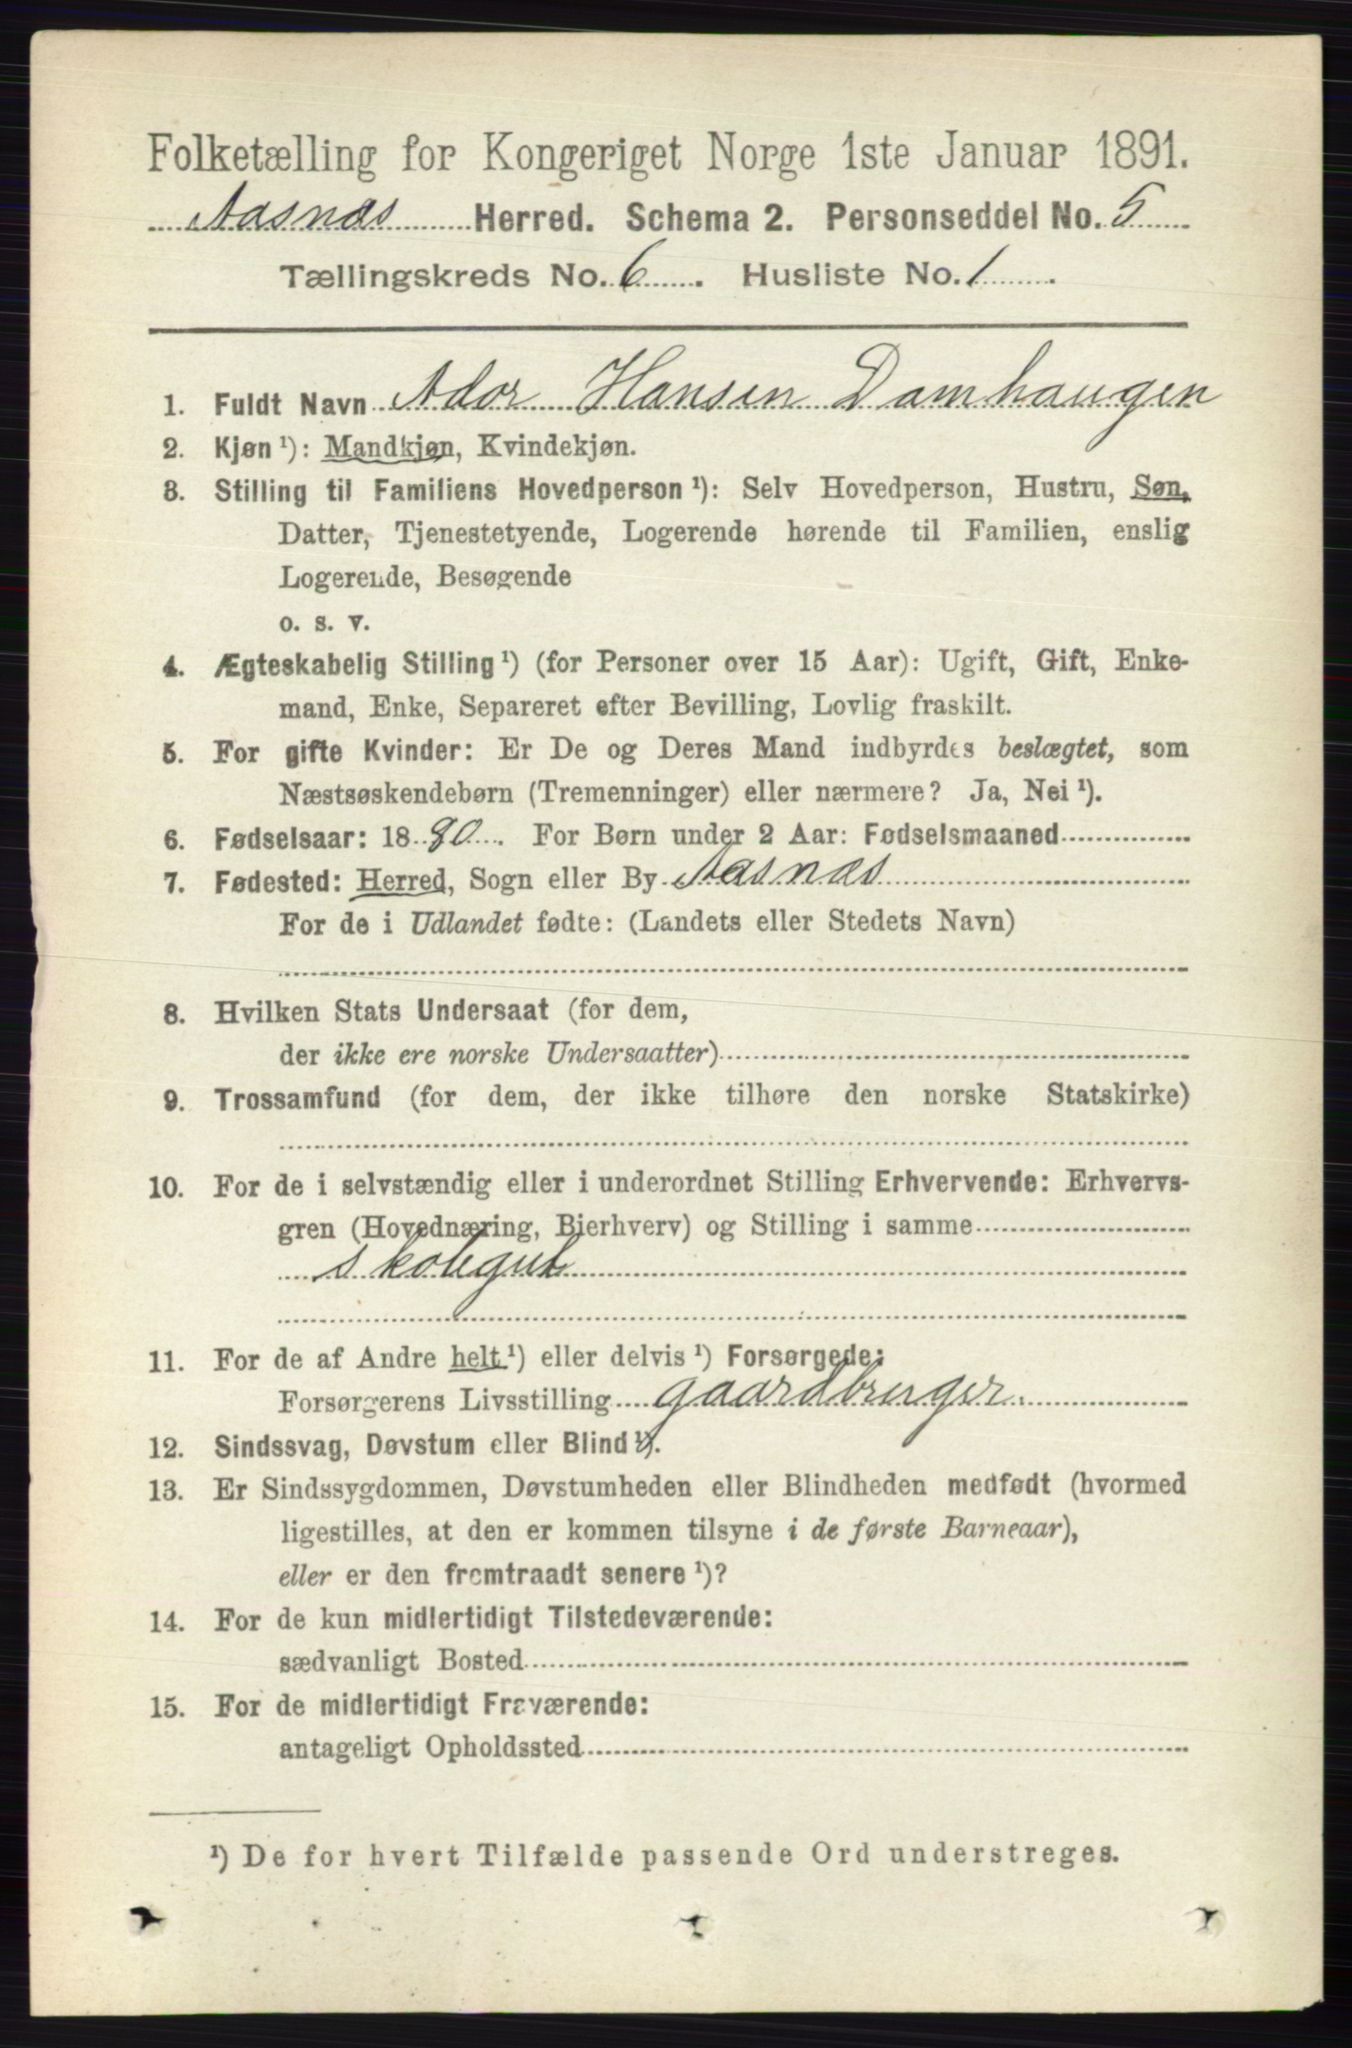 Folketælling for Kongeriget Norge 1ste Januar 1891.
Aasnæs Herred. Schema 2. Personseddel No. 5
Tællingskreds No. 6. Husliste No. 1.
1. Fuldt Navn Ador Hansen Damhaugen
2. Kjøn ¹): Mandkjøn, Kvindekjøn.
3. Stilling til Familiens Hovedperson ¹): Selv Hovedperson, Hustru, Søn,
Datter, Tjenestetyende, Logerende hørende til Familien, enslig
Logerende, Besøgende
o. s. v.
4. Ægteskabelig Stilling ¹) (for Personer over 15 Aar): Ugift, Gift, Enke-
mand, Enke, Separeret efter Bevilling, Lovlig fraskilt.
5. For gifte Kvinder: Er De og Deres Mand indbyrdes beslægtet, som
Næstsøskendebørn (Tremenninger) eller nærmere? Ja, Nei ¹).
6. Fødselsaar: 1880. For Børn under 2 Aar: Fødselsmaaned
7. Fødested: Herred, Sogn eller By Aasnæs
For de i Udlandet fødte: (Landets eller Stedets Navn)
8. Hvilken Stats Undersaat (for dem,
der ikke ere norske Undersaatter)
9. Trossamfund (for dem, der ikke tilhøre den norske Statskirke)
10. For de i selvstændig eller i underordnet Stilling Erhvervende: Erhvervs-
gren (Hovednæring, Bierhverv) og Stilling i samme
skolegut
11. For de af Andre helt ¹) eller delvis ¹) Forsørgede:
Forsørgerens Livsstilling gaardbruger.
12. Sindssvag, Døvstum eller Blind ¹).
13. Er Sindssygdommen, Døvstumheden eller Blindheden medfødt (hvormed
ligestilles, at den er kommen tilsyne i de første Barneaar),
eller er den fremtraadt senere ¹)?
14. For de kun midlertidigt Tilstedeværende:
sædvanligt Bosted
15. For de midlertidigt Fraværende:
antageligt Opholdssted
¹) De for hvert Tilfælde passende Ord understreges.